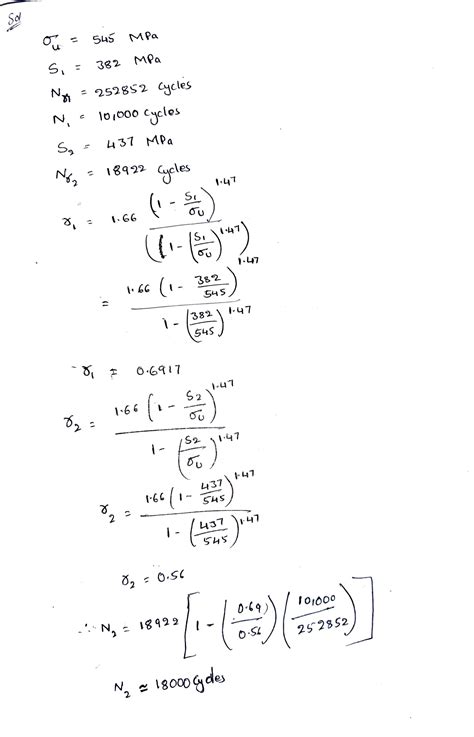 Sol
σu = 545 MPa
S1 = 382 MPa
Nr1 = 252852 cycles
N1 = 10,000 cycles
S2 = 437 MPa
Nr2 = 18922 cycles
r1 = 1.66 (1 - S1/σu)^1.47 / ((1 - (S1/σu)^1.47))
= 1.66 (1 - 382/545)^1.47 / 1 - (382/545)^1.47
r1 = 0.6917
r2 = 1.66 (1 - S2/σu)^1.47 / 1 - (S2/σu)^1.47
r2 = 1.66 (1 - 437/545)^1.47 / 1 - (437/545)^1.47
r2 = 0.56
∴ N2 = 18922 [1 - (0.69/0.56) (10,000/252852)]
N2 ≃ 18000 cycles